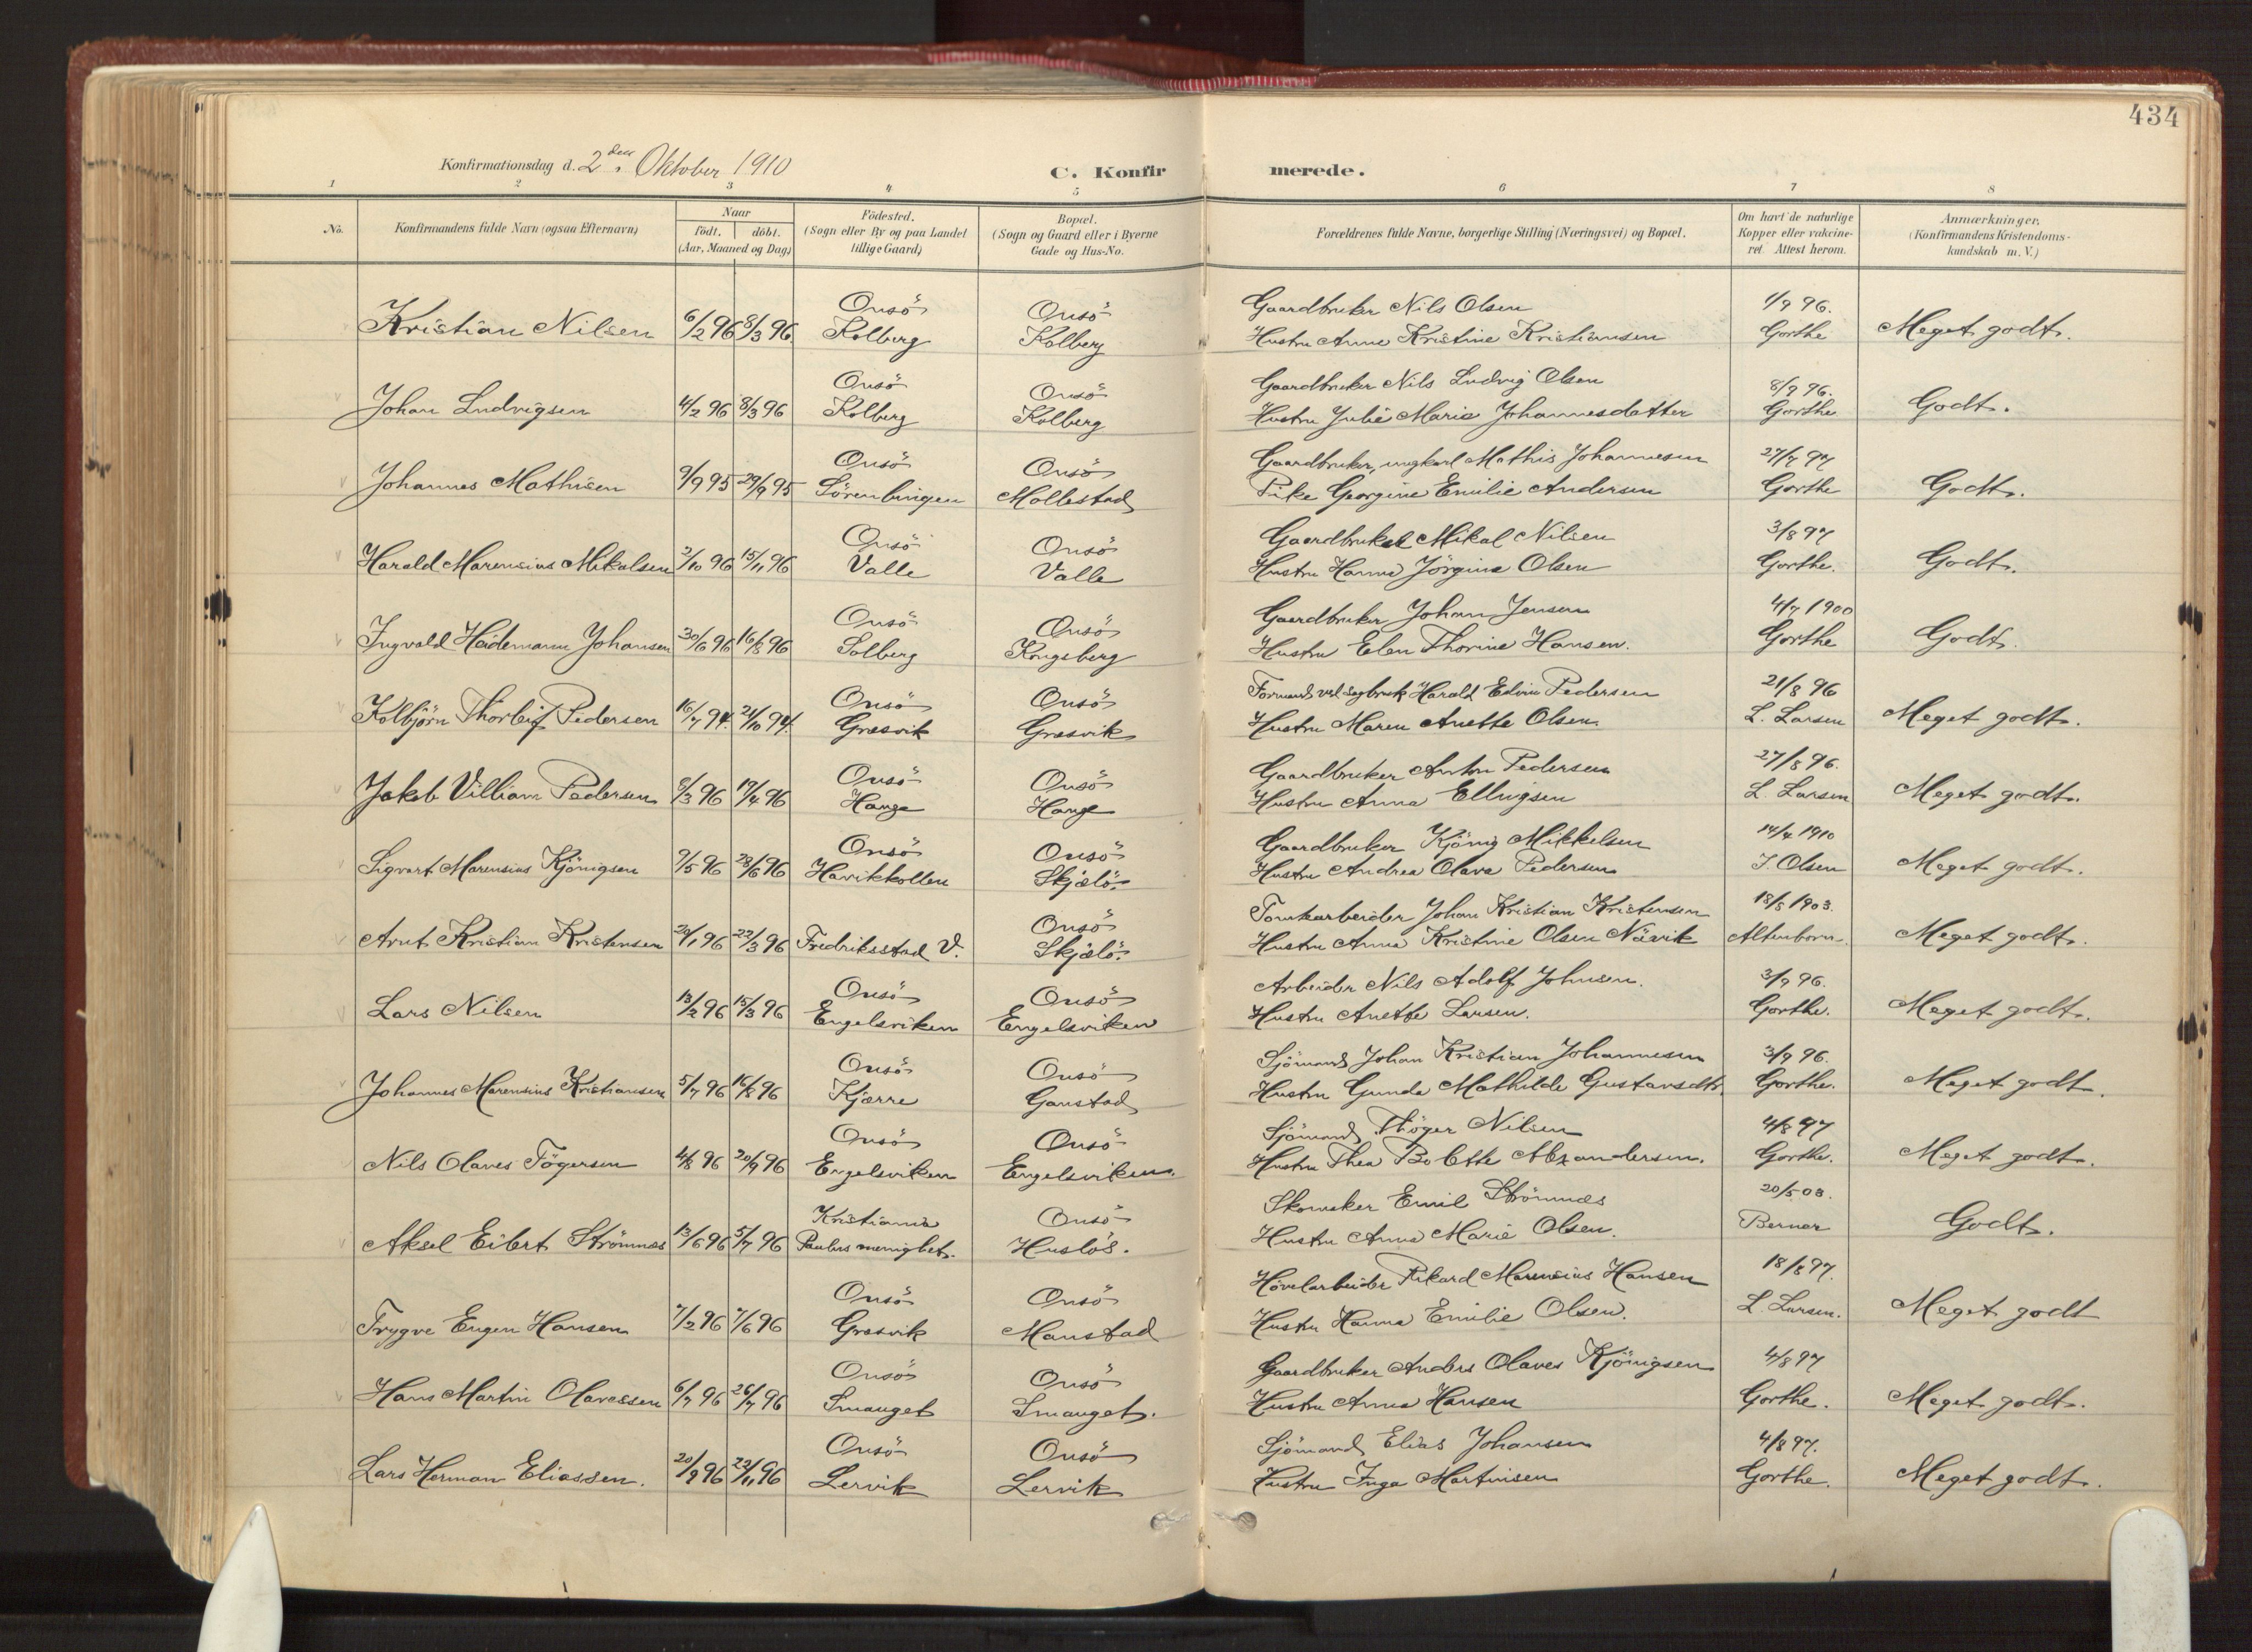 434
Konfirmationsdag d. 2den Oktober 1910
C. Konfirmerede.
1 2 3 4 5 6 7 8
No.
Konfirmandens fulde Navn (ogsaa Efternavn)
Naar
født. døbt.
(Aar, Maaned og Dag)
Fødested.
(Sogn eller By og paa Landet
tillige Gaard)
Bopæl.
(Sogn og Gaard eller i Byerne
Gade og Hus-No.
Forældrenes fulde Navne, borgerlige Stilling (Næringsvei) og Bopæl.
Om havt de naturlige
Kopper eller vakcine-
ret. Attest herom.
Anmærkninger.
(Konfirmandens Kristendoms-
kundskab m. V.)
Onsö Onsö Gaardbruker Nils Olsen 1/9 96.
Kristian Nilsen 6/2 96 8/3 96. Kolberg Kolberg Hustru Anne Kristine Kristiansen Gorthe Meget godt.
Onsö Onsö Gaardbruker Nils Ludvig Olsen 8/9 96.
Johan Ludvigsen 4/2 96 8/3 96 Kolberg Kolberg Hustru Julie Marie Johannesdatter Gorthe Godt.
Onsö Onsö Gaardbruker, ungkarl Mathis Johannesen 27/7 97
Johannes Mathisen 9/9 95 29/9 95 Sörenbingen Mollestad Pike Georgine Emilie Andersen Gorthe Godt.
Onsö Onsö Gaardbruker Mikal Nilsen 3/8 97
Harald Marensius Mikalsen 2/10 96 15/11 96 Valle Valle Hustru Hanna Jörgine Olsen Gorthe. Godt.
Onsö Onsö Gaardbruker Johan Jensen 4/7 1900
Ingvald Heidemann Johansen 30/6 96 16/8 96 Solberg Kongsberg Hustru Elen Thorine Hansen. Gorthe Godt.
Onsö Onsö Formand ved sagbruk Harald Edvin Pedersen 21/8 96
Kolbjörn Thorleif Pedersen 16/7 94. 21/10 94. Græsvik Græsvik Hustru Maren Anette Olsen L. Larsen Meget godt.
Onsö Onsö Gaardbruker Anton Pedersen 27/8 96.
Jakob Villiam Pedersen 8/3 96 17/4 96 Hauge Hauge Hustru Anna Ellingsen L. Larsen Meget godt.
Onsö Onsö Gaardbruker Kjönig Mikkelsen 14/4 1910
Sigvart Marensius Kjönigsen 9/5 96 28/6 96 Havikkollen Skjælö. Hustru Andrea Olava Pedersen J Olsen Meget godt.
Onsö Tomtearbeider Johan Kristian Kristensen 18/8 1903.
Arnt Kristian Kristensen 20/1 96 22/3 96 Fredriksstad V. Skjælö. Hustru Anna Kristine Olsen Nävik Altenborn. Meget godt.
Onsö Onsö Arbeider Nils Adolf Johnsen. 3/9 96.
Lars Nilsen 13/2 96 15/3 96 Engelsviken Engelsviken Hustru Anette Larsen. Gorthe. Meget godt.
Onsö Onsö Sjömand Johan Kristian Johannesen 3/9 96.
Johannes Marensius Kristiansen 5/7 96 16/8 96 Kjærre Gaustad Hustru Gunda Mathilde Gustavsdtr. Gorthe. Meget godt.
Onsö Onsö Sjömand Thöger Nilsen 4/8 97
Nils Olaves Tögersen 4/8 96 20/9 96 Engelsviken Engelsviken. Hustru Thea Bolette Alexandersen. Gorthe. Meget godt.
Kristiania Onsö Skomaker Emil Strömnæs 20/5 03.
Aksel Eibert Strömnæs 13/6 96 5/7 96 Paulus menighet. Huslös. Hustru Anna Marie Olsen. Berner Godt.
Onsö Onsö Hövelarbeider Rikard Marensius Hansen 18/8 97.
Trygve Eugen Hansen 7/2 96 7/6 96 Græsvik Manstad Hustru Hanna Emilie Olsen. L. Larsen. Meget godt
Onsö Onsö Gaardbruker Anders Olaves Kjönigsen 4/8 97
Hans Martin Olavessen 6/7 96 26/7 96 Smauget Smauget. Hustru Anna Hansen Gorthe. Meget godt.
Onsö Onsö Sjömand Elias Johansen 4/8 97.
Lars Herman Eliassen. 20/9 96 22/11 96 Lervik Lervik Hustru Inga Martinsen Gorthe. Meget godt.